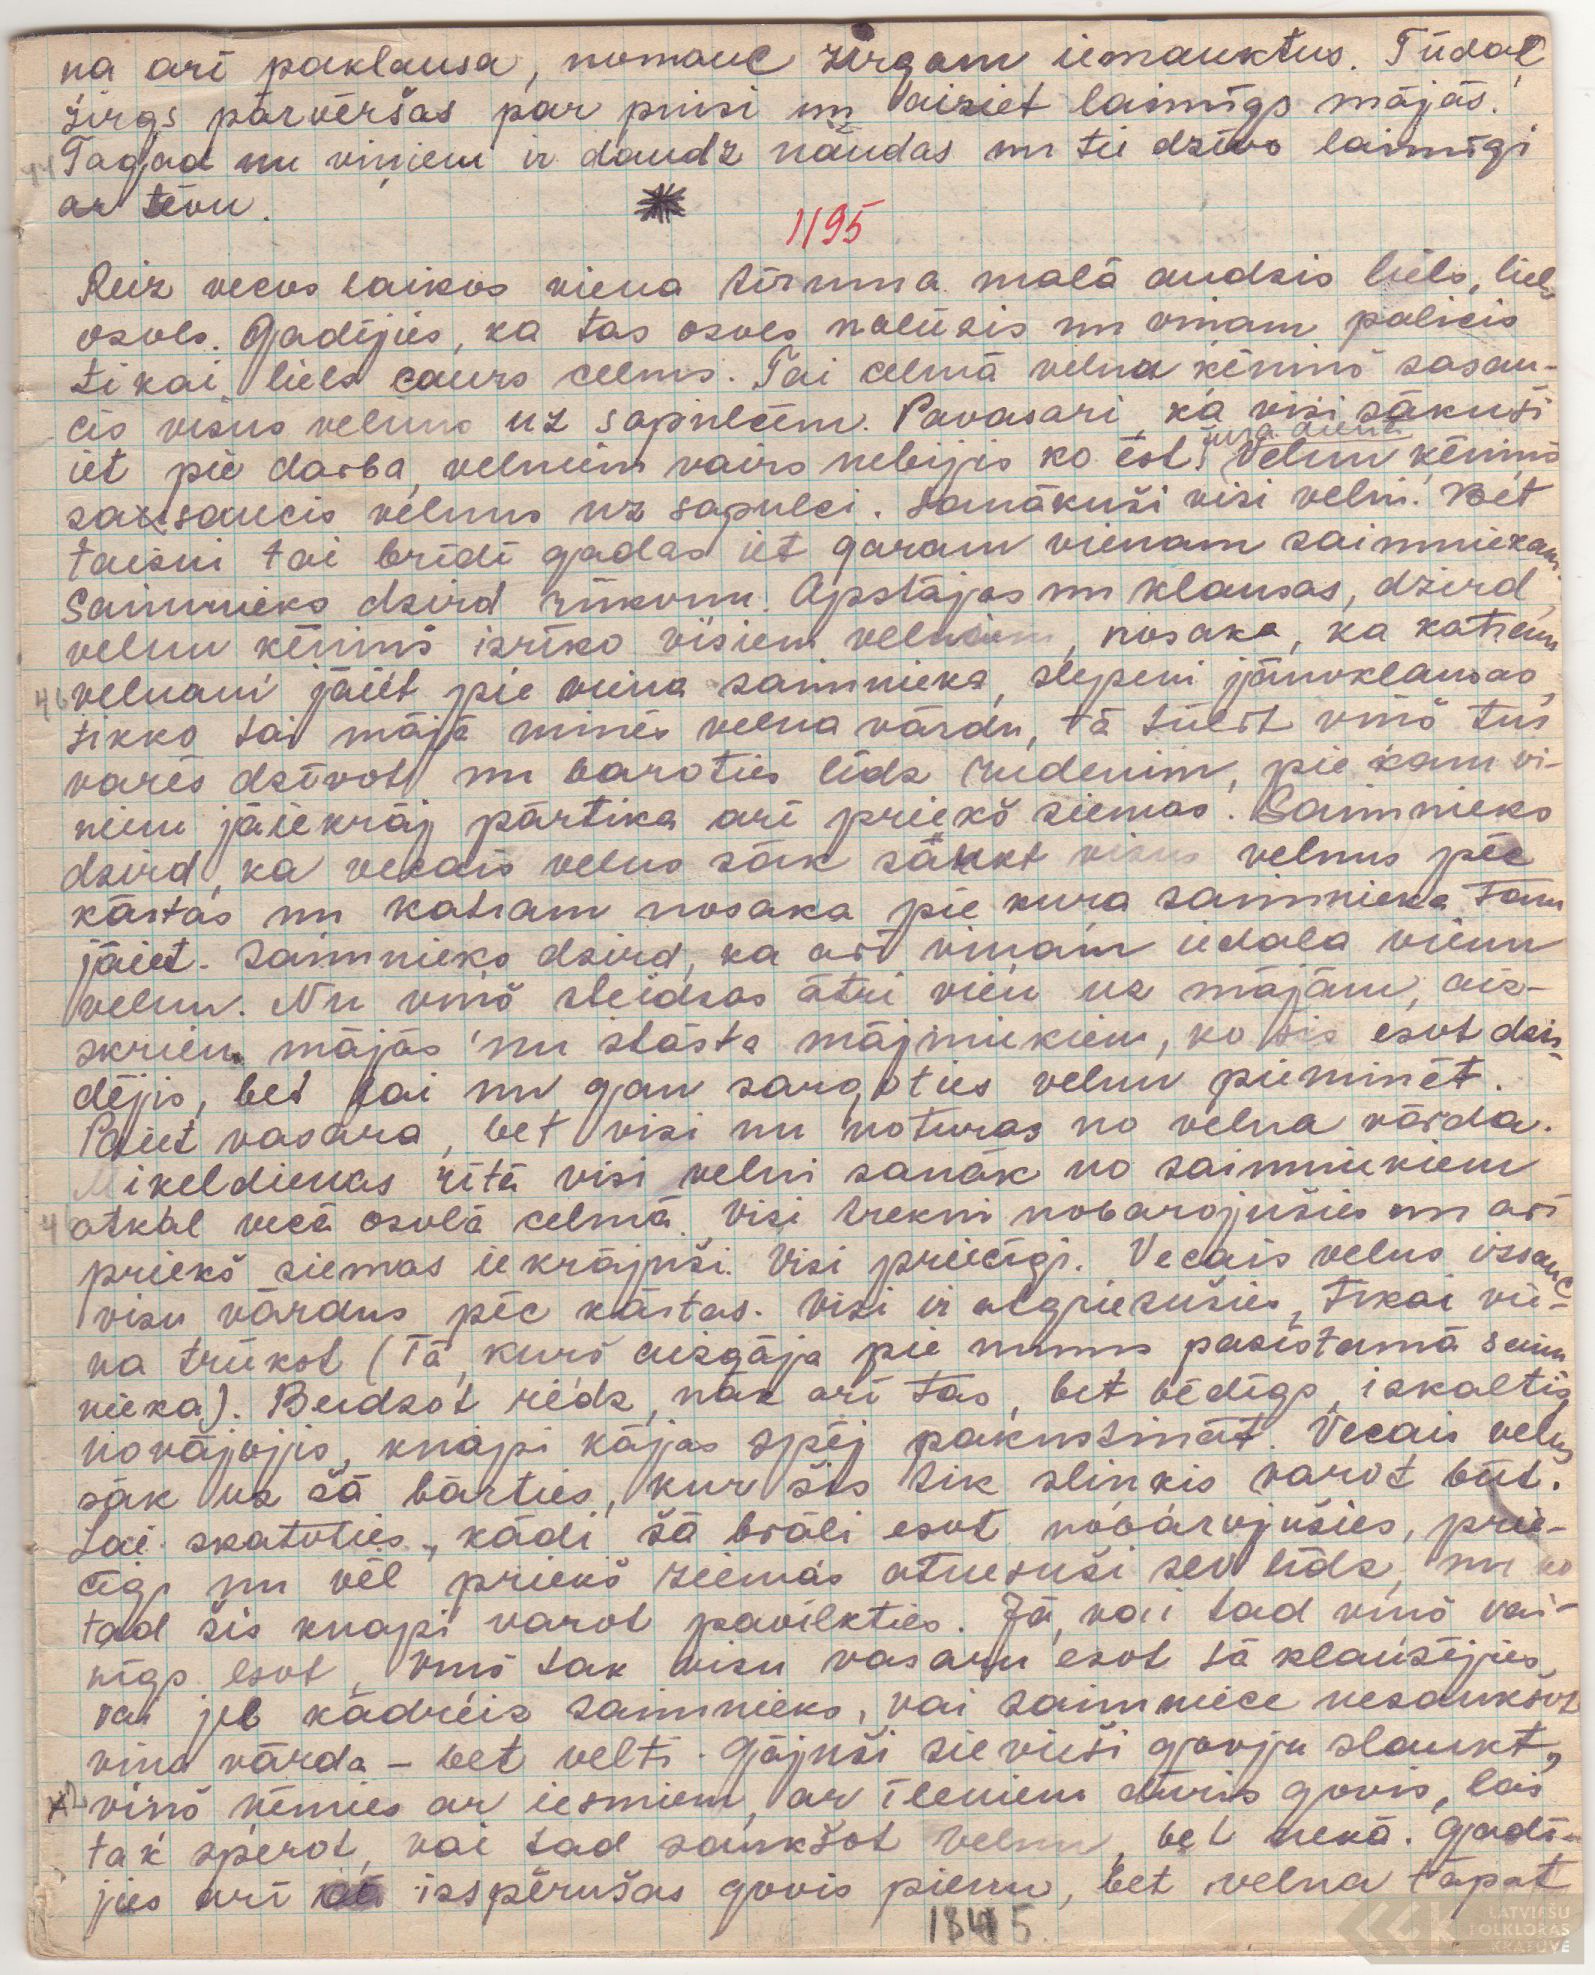 ņa arī paklausa, nomauc zirgam iemauktus. Tūdaļ
zirgs pārvēršas par puisi un aiziet laimīgs mājās.
Tagad nu viņiem ir daudz naudas un tie dzīvo laimīgi
ar tēvu.
1195
Reiz vecos laikos viena tīruma malā audzis liels, liels
ozols. Gadījies, ka tas ozols nolūzis un viņam palicis
tikai liels caurs celms. Tai celmā velna ķēniņš sasau-
cis visus velnus uz sapulcēm. Pavasarī, kā visi sākuši
iet pie darba, velniem vairs nebijis ko ēst. Velnu ķēniņš
sasaucis velnus uz sapulci. Sanākuši visi velni. Bet
taisni tai brīdī gadās iet garam vienam saimniekam.
Saimnieks dzird rūkoņu. Apstājas un klausas, dzird,
velnu ķēniņš izrīko visiem velniem, nosaka, ka katram
46 velnam jāiet pie viena saimnieka, slepeni jānoklausas,
tikko tai mājā minēs velna vārdu, tā tūlīt viņš tur
varēs dzīvot un baroties līdz rudenim, pie kam vi-
ņiem jāiekrāj pārtika arī priekš ziemas. Saimnieks
dzird, ka vecais velns sāk saukt visus velnus pēc
kārtas un katram nosaka pie kura saimnieka tam
jāiet. Saimnieks dzird, ka arī viņam iedala vienu
velnu. Nu viņš steidzas ātri vien uz mājām, aiz-
skrien mājās un stāsta mājniekiem, ko šis esot dzir-
dējis, bet lai nu gan sargoties velnu pieminēt.
Paiet vasara, bet visi nu noturas no velna vārda.
Miķeldienas rītā visi velni sanāk no saimniekiem
atkal vecā ozolā celmā. Visi trekni nobarojušies un arī
priekš ziemas iekrājuši. Visi priecīgi. Vecais velns izsauc
visu vārdus pēc kārtas. Visi ir atgriezušies, tikai vie-
na trūkst (Tā, kurš aizgāja pie mums pazīstamā saim
nieka). Beidzot redz, nāk arī tas, bet bēdīgs, izkaltis,
novājojis, knapi kājas spēj pakustināt. Vecais velns
sāk uz šā bārties, kur šis tik slinkis varot būt.
Lai skatoties, kādi šā brāli esot nobarojušies, prie-
cīgi un vēl priekš ziemas atnesuši sev līdz, un ko
tad šis knapi varot pavilkties. Jā, vai tad viņš vai-
nīgs esot, viņš tak visu vasaru esot tā klausījies,
vai jeb kādreiz saimnieks, vai saimniece nesaukšot
viņa vārda – bet velti. Gājuši sievieši govju slaukt,
viņš ņēmies ar iesmiem, ar īleniem dūris govis, lais
tak sperot, vai tad saukšot velnu, bet nekā. Gadī-
jies arī izspērušas govis pienu, bet velna tāpat
1845
LATVIEŠU
FOLKLORAS
KRĀTUVE